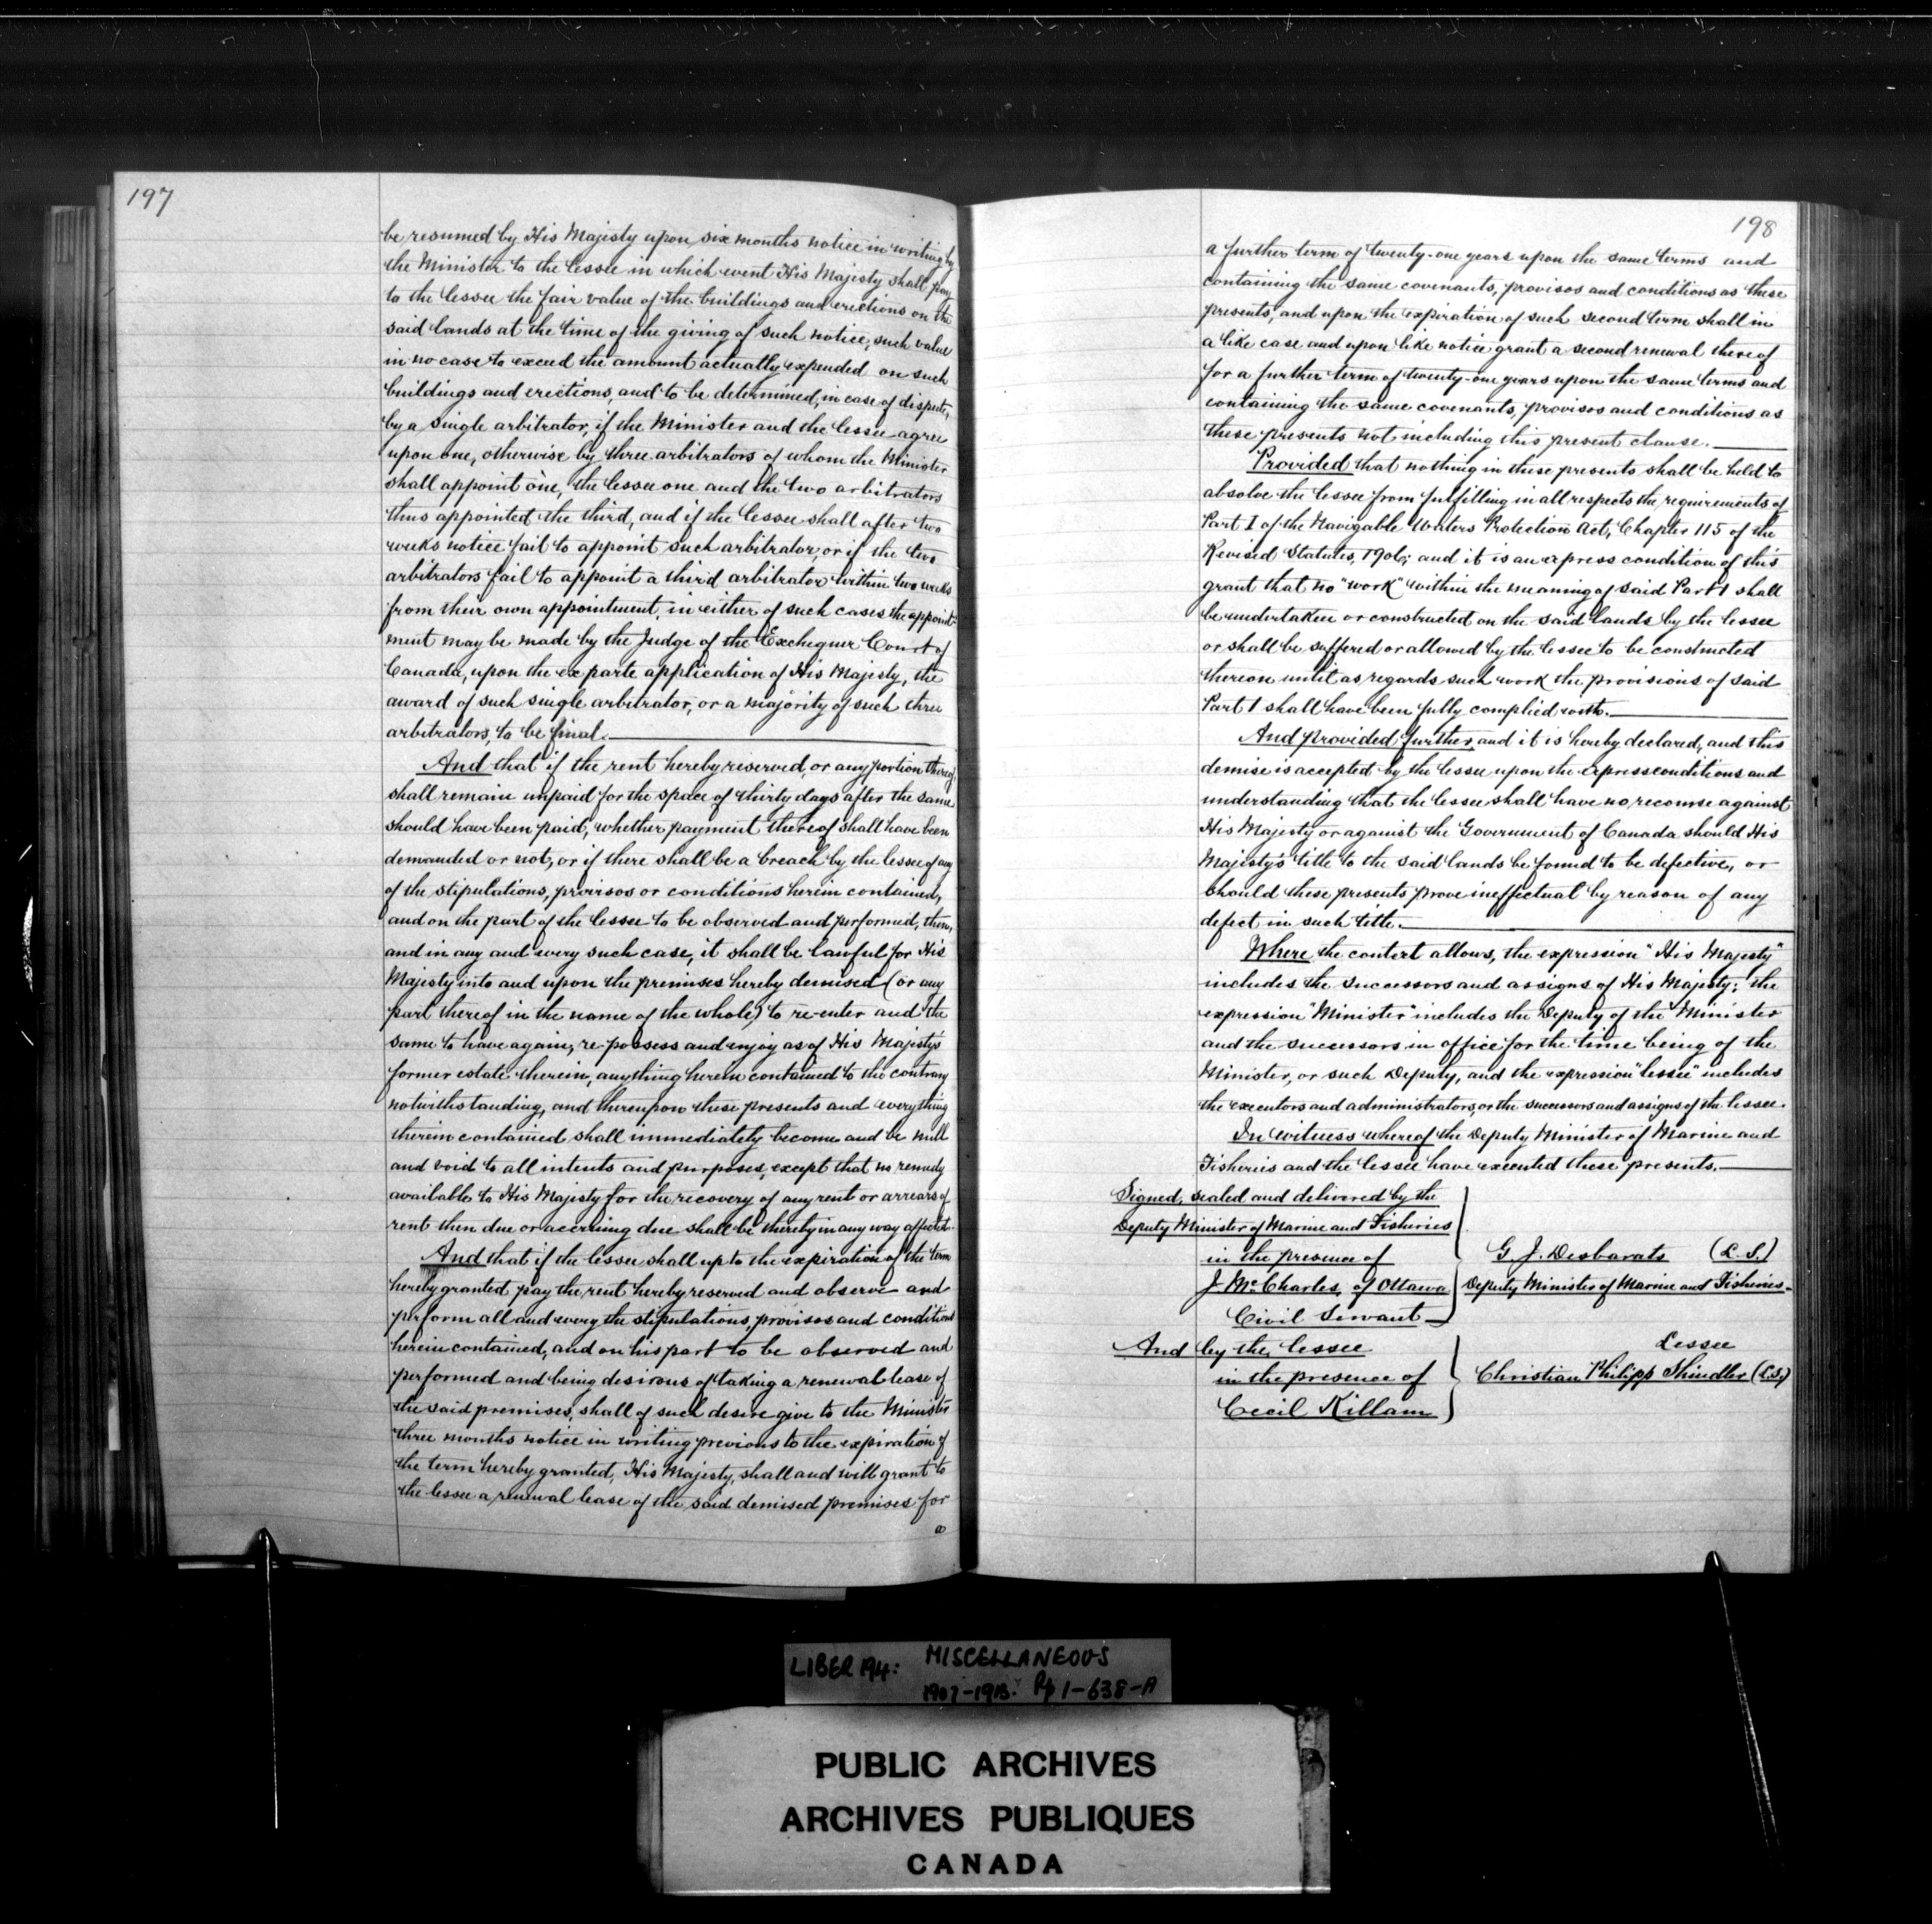 197
be resumed by His Majesty upon six months notice in writing by
the Minister to the lessee in which event His Majesty shall pay
to the lessee the fair value of the buildings and erections on the
said lands at the time of the giving of such notice, such value
in no case to exceed the amount actually expended on such
buildings and erections, and to be determined, in case of dispute,
by a single arbitrator, if the Minister and the lessee agree
upon one, otherwise by three arbitrators of whom the Minister
shall appoint one, the lessee one and the two arbitrators
thus appointed the third, and if the lessee shall after two
weeks notice fail to appoint such arbitrator, or if the two
arbitrators fail to appoint a third arbitrator within two weeks
from their own appointment, in either of such cases the appoint-
ment may be made by the Judge of the Exchequer Court of
Canada, upon the ex parte application of His Majesty, the
award of such single arbitrator, or a majority of such three
arbitrators, to be final.
And that if the rent hereby reserved, or any portion thereof
shall remain unpaid for the space of thirty days after the same
should have been paid, whether payment thereof shall have been
demanded or not, or if there shall be a breach by the lessee of any
of the stipulations, provisos or conditions herein contained,
and on the part of the lessee to be observed and performed, then,
and in any and every such case, it shall be lawful for His
Majesty into and upon the premises hereby demised (or any
part thereof in the name of the whole) to re-enter and the
same to have again, re-possess and enjoy as of His Majesty's
former estate therein, anything herein contained to the contrary
notwithstanding, and thereupon these presents and everything
therein contained shall immediately become and be null
and void to all intents and purposes, except that no remedy
available to His Majesty for the recovery of any rent or arrears of
rent then due or accruing due shall be thereby in any way affected.
And that if the lessee shall up to the expiration of the term
hereby granted pay the rent hereby reserved and observe and
perform all and every the stipulations, provisos and conditions
herein contained, and on his part to be observed and
performed and being desirous of taking a renewal lease of
the said premises, shall of such desire give to the Minister
three months notice in writing previous to the expiration of
the term hereby granted, His Majesty, shall and will grant to
the lessee a renewal lease of the said demised premises for
a
198
a further term of twenty-one years upon the same terms and
containing the same covenants, provisos and conditions as these
presents, and upon the expiration of such second term shall in
a like case and upon like notice grant a second renewal thereof
for a further term of twenty-one years upon the same terms and
containing the same covenants, provisos and conditions as
these presents not including this present clause.
Provided that nothing in these presents shall be held to
absolve the lessee from fulfilling in all respects the requirements of
Part I of the Navigable Waters Protection Act, Chapter 115 of the
Revised Statutes, 1906; and it is an express condition of this
grant that no "work" within the meaning of said Part I shall
be undertaken or constructed on the said lands by the lessee
or shall be suffered or allowed by the lessee to be constructed
thereon until as regards such work the provisions of said
Part I shall have been fully complied with.
And provided further, and it is hereby declared, and this
demise is accepted by the lessee upon the express conditions and
understanding that the lessee shall have no recourse against
His Majesty or against the Government of Canada should His
Majesty's title to the said lands be found to be defective, or
should these presents prove ineffectual by reason of any
defect in such title.
Where the context allows, the expression "His Majesty"
includes the successors and assigns of His Majesty; the
expression "Minister" includes the Deputy of the Minister
and the successors in office for the time being of the
Minister, or such Deputy, and the expression "lessee" includes
the executors and administrators, or the successors and assigns of the lessee.
In witness whereof the Deputy Minister of Marine and
Fisheries and the lessee have executed these presents.
Signed, sealed and delivered by the
Deputy Minister of Marine and Fisheries
in the presence of
J. McCharles, of Ottawa
Civil Servant
G. J. Desbarats (L.S.)
Deputy Minister of Marine and Fisheries.
And by the lessee
in the presence of
Cecil Killam
Lessee
Christian Philipp Shindler (L.S.)
LIBER 194: MISCELLANEOUS
1907-1913. Pp 1-638-A
PUBLIC ARCHIVES
ARCHIVES PUBLIQUES
CANADA